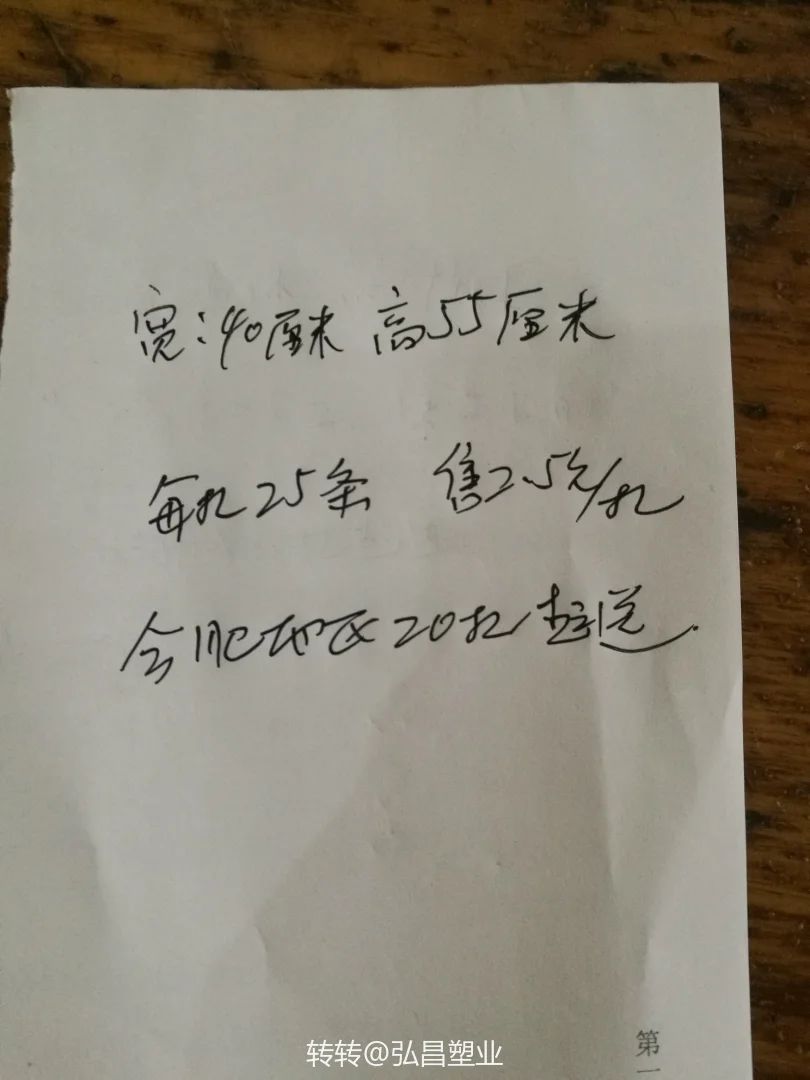 宽:40厘米 高55厘米
每扎25条 售2.5元/扎
合肥地区20扎起送.
第一
转转@弘昌塑业